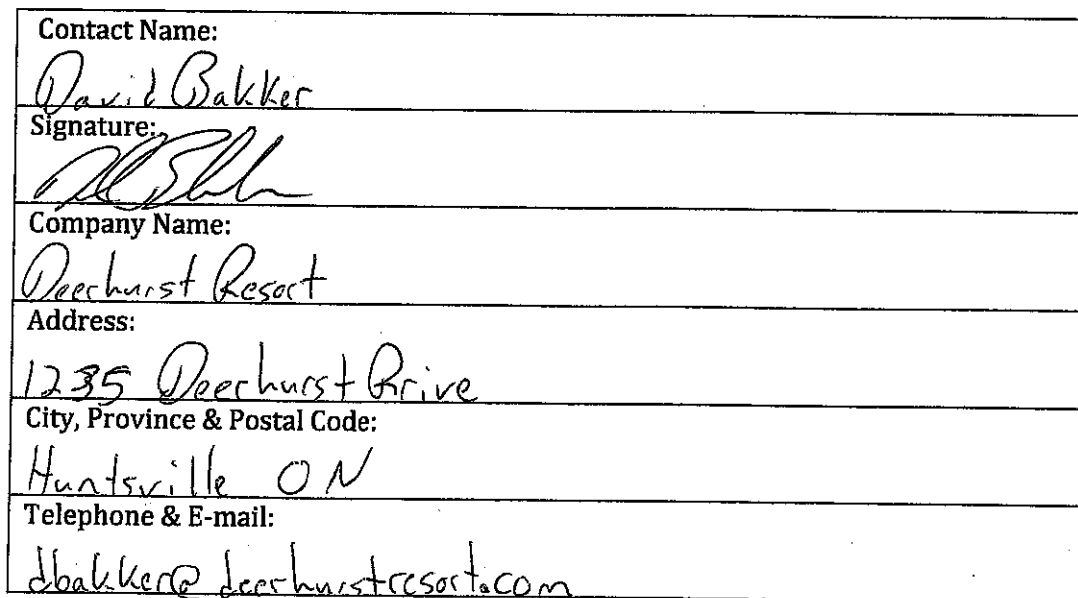 Contact Name:
David Bakker
Signature:
Company Name:
Deerhurst Resort
Address:
1235 Deerhurst Drive
City, Province & Postal Code:
Huntsville ON
Telephone & E-mail:
dbakker@deerhurstresort.com